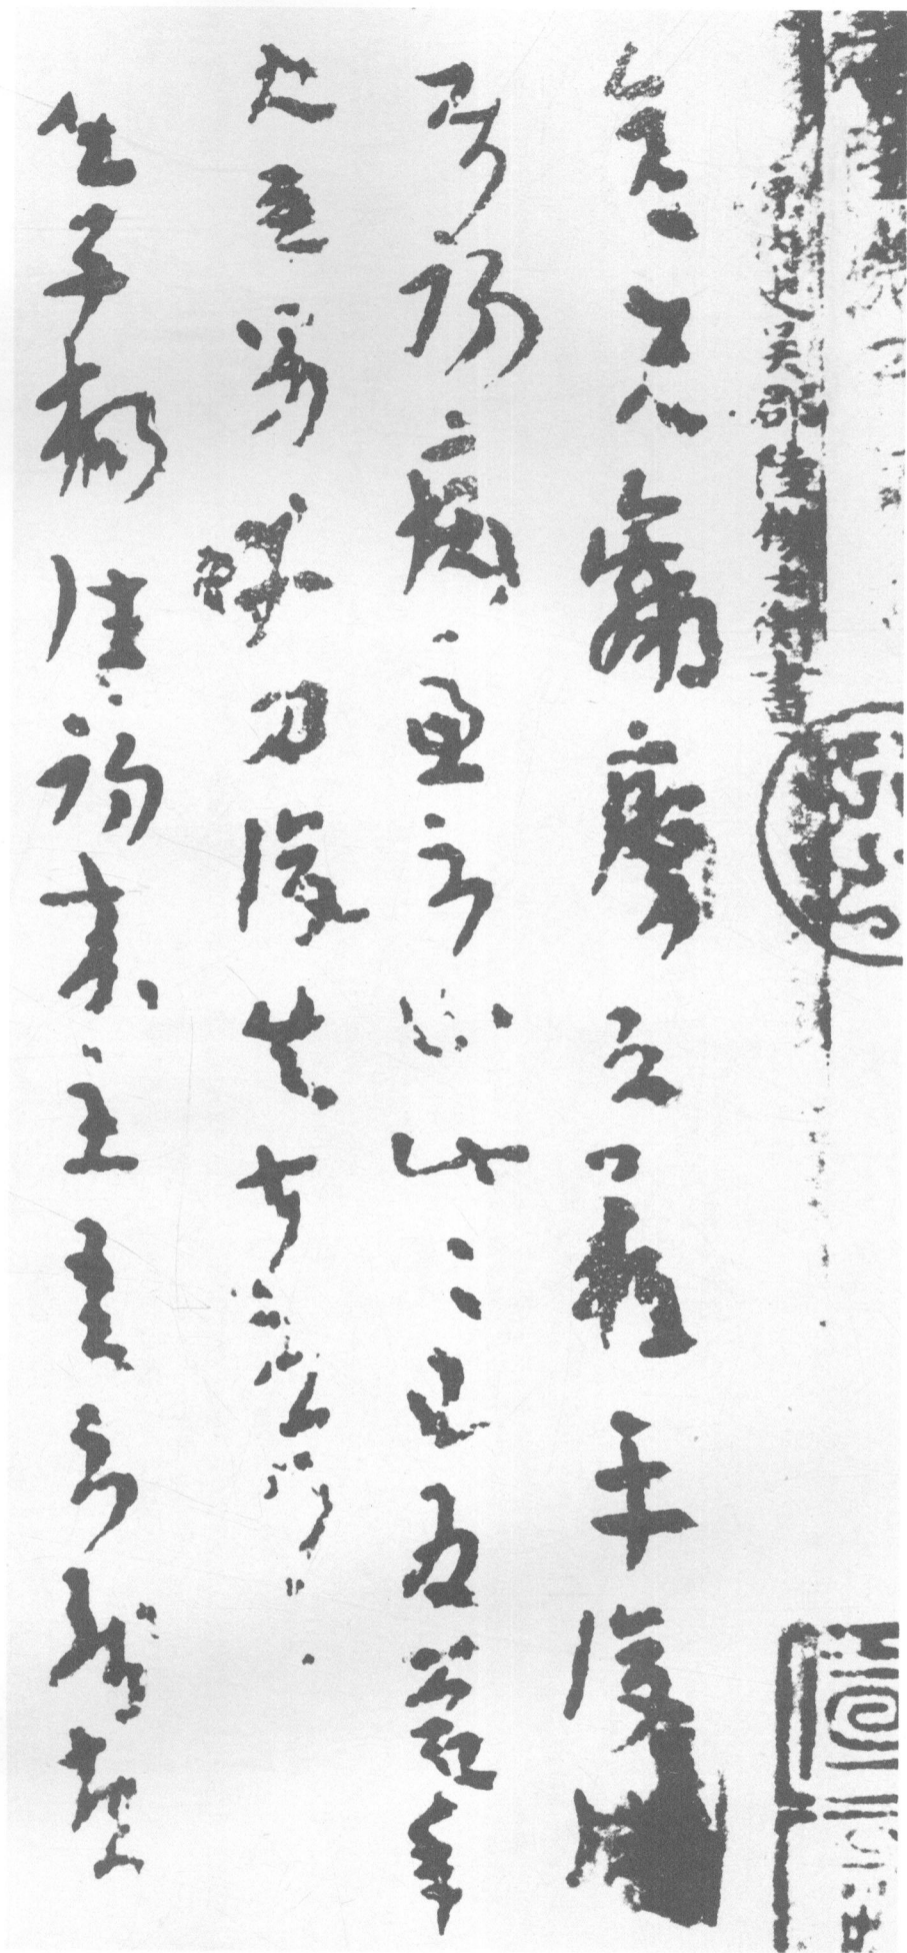 原内史吳郡陸機士衡書
彦先羸瘵恐難平復
屬初病慮不止此此已為慶承
使唯男幸為復失前憂耳
吳子楊往初來主吾不能盡